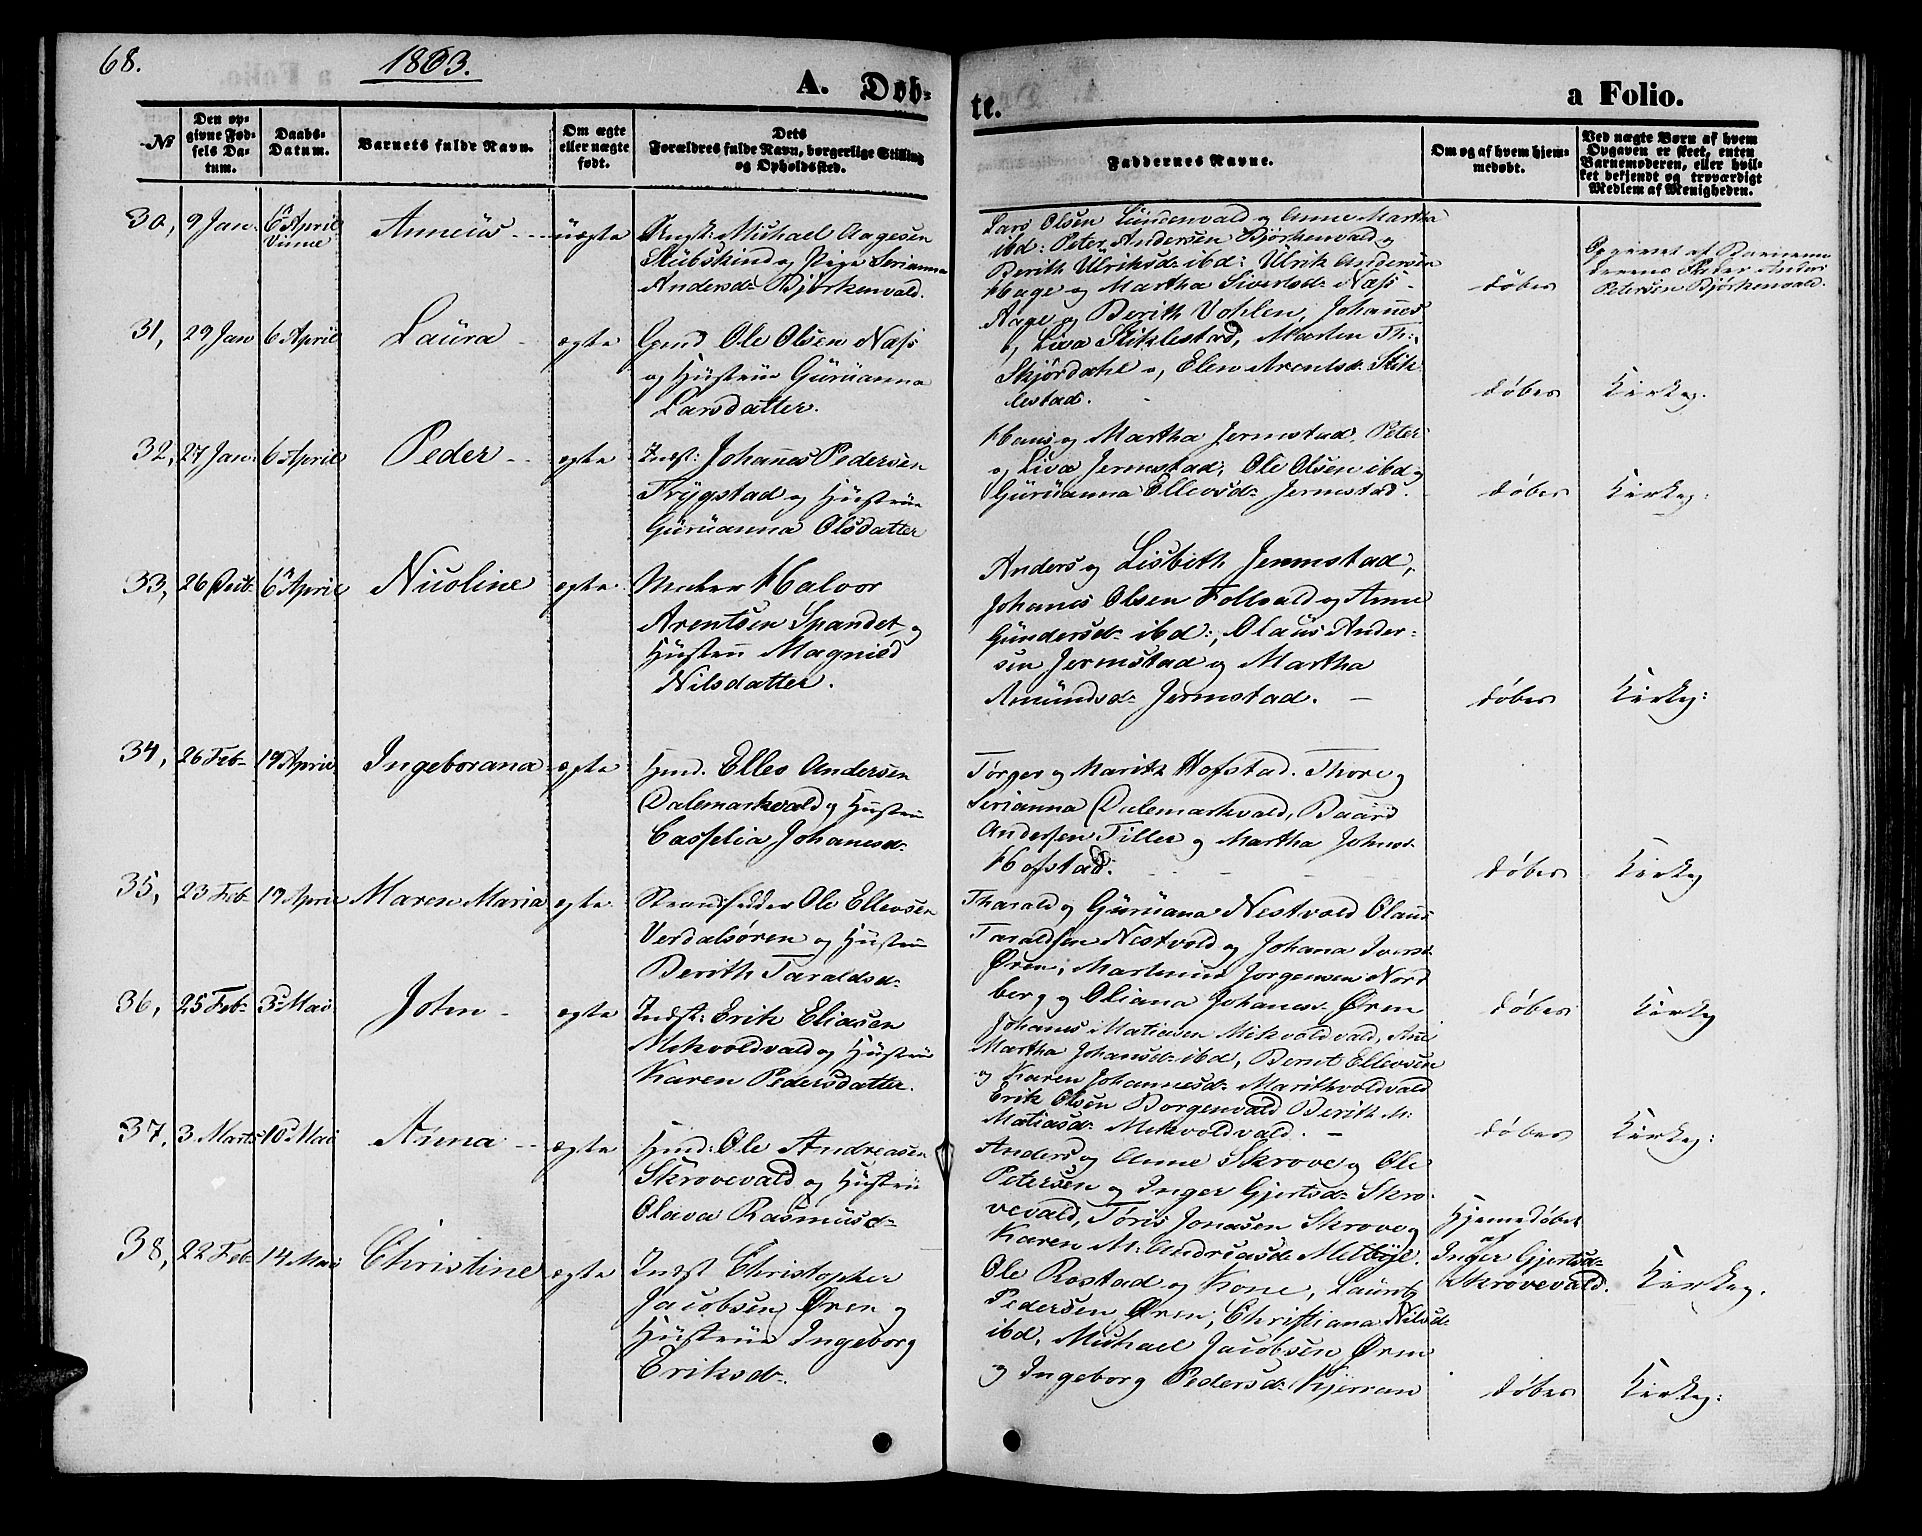 68.
1863.
A. Døb-
te.
a Folio.
No
Den op-
givne Fød-
sels Da-
tum.
Daabs-
Datum.
Barnets fulde Navn.
Om ægte
eller uægte
født.
Dets
Forældres fulde Navn, borgerlige Stilling
og Opholdssted.
Faddernes Navne.
Om og af hvem hjem-
medøbt.
Ved uægte Børn af hvem
Opgaven er skeet, enten
Barnemoderen, eller hvil-
ket bekjendt og troværdigt
Medlem af Menigheden.
30, 9 Jan: 6 April
Vinne
Anneüs
üægte
Ungk: Michael Aagesen
Stübskind og Pige Serianna
Andersd: Bjørkenvald.
Lars Olsen Lündenvald og Anne Martha
ibd: Peter Andersen Bjørkenvald og
Berith Ülriksd: ibd: Ülrik Andersen
Hage og Martha Sivertsd: Næss
døber
Opgivet af Barnemo
derens Fader Anders
Petersen Bjørkenvald.
31, 29 Jan 6 April
Laüra
ægte
Gmd Ole Olsen Næss
og Hüstrüe Gürüanna
Larsdatter.
Aage og Berith Vohlen, Johanes
og Liva Stiklestad, Morten Th:
Skjørdahl og Elen Arentsd: Stik
lestad.
døber
Kirkeg.
32, 27 Jan: 6 April
Peder
ægte
Indst: Johanes Pedersen
Trÿgstad og Hüstrüe
Gürüanna Olsdatter
Hans og Martha Jermstad, Peter
og Liva Jermstad, Ole Olsen ibd og
Gürüanna Ellevsd: Jermstad.
døber
Kirkeg:
33, 26 Decb: 6 April
Nicoline
ægte
Halvor
Arentsen Spandet og
Hüstrü Magnild
Nilsdatter.
Anders og Lisbeth Jermstad,
Johanes Olsen Follvald og Anne
Gündersd: ibd:, Olaüs Ander-
sen Jermstad og Martha
Amündsd: Jermstad.
døber
Kirkeg:
34, 26 Feb: 19 April
Ingeborana
ægte
Hmd. Elles Andersen
Dalemarkvald og Hüstrü
Casselia Johanesd:
Tørger og Marith Hofstad. Thore og
Serianna Dalemarkvald, Baard
Andersen Tiller og Martha Johnsd:
Hofstad.
døber
Kirkeg
35, 23 Feb: 19 April
Maren Maria
ægte
Strandsidder Ole Ellevsen
Verdalsøren og Hüstrü
Berith Taraldsd:
Tharald og Gürüana Nestvold Olaus
Taraldsen Nestvold og Johana Iversd:
Øren, Martinus Jørgensen Nord
berg og Oliana Johanesd: Øren
døber
Kirkeg
36, 25 Feb: 3 Mai
John
ægte
Indst: Erik Eliasen
Mikvoldvald og Hüstrü
Karen Pedersdatter.
Johanes Matiasen Mikvoldvald, Ane
Martha Johansd: ibd, Bernt Ellevsen
og Karen Johannesd: Marithvoldvald
Erik Olsen Borgenvald Berith M:
Matiasd: Mikvoldvald.
døber
Kirkeg:
37, 3 Marts 10 Mai
Anna
ægte
Hmd: Ole Andreasen
Skrovevald og Hüstrü
Olava Rasmüsd:
Anders og Anne Skrove og Ole
Petersen og Inger Gjertsd: Skro-
vevald, Tøris Jonasen Skrove og
Karen M: Andreasd: Melbÿe.
Hjemedøbt
af
Inger Gjertsd:
Skrovevald.
Kirkeg.
38, 22 Feb: 14 Mai
Christine
ægte
Indst Christopher
Jacobsen Øren og
Hüstrüe Ingeborg
Eriksd:
Ole Rostad og Kone, Lauritz
Pedersen Øren, Christiana Nilsd:
ibd, Michael Jacobsen Øren
og Ingeborg Pedersd: Kjerran
døber
Kirkeg: